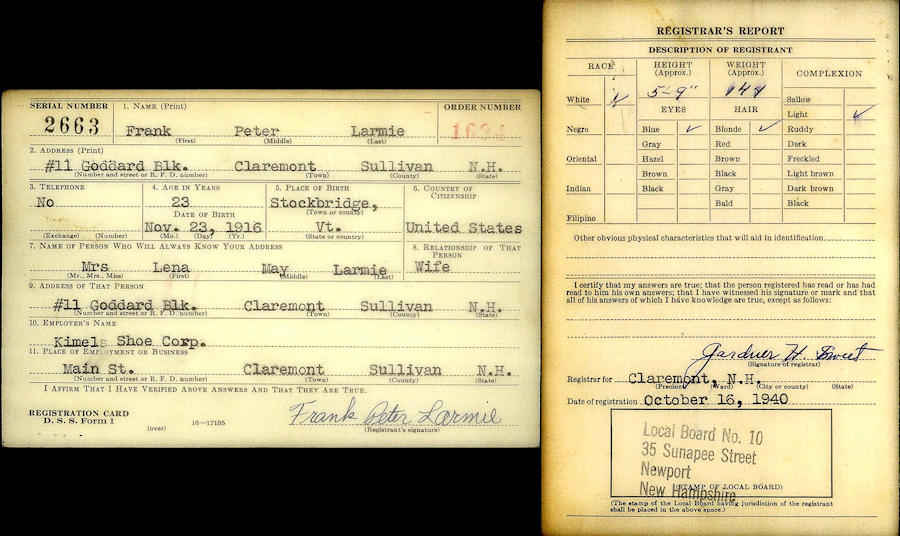 SERIAL NUMBER
1. NAME (Print)
ORDER NUMBER
2663
Frank Peter Larmie
(First) (Middle) (Last)
2. ADDRESS (Print)
#11 Goddard Blk. Claremont Sullivan N.H.
(Number and street or R. F. D. number) (Town) (County) (State)
3. TELEPHONE
4. AGE IN YEARS
5. PLACE OF BIRTH
6. COUNTRY OF CITIZENSHIP
No
23
Stockbridge,
(Town or county)
DATE OF BIRTH
Nov. 23, 1916
Vt.
United States
(Exchange) (Number)
(Mo.) (Day) (Yr.)
(State or country)
7. NAME OF PERSON WHO WILL ALWAYS KNOW YOUR ADDRESS
8. RELATIONSHIP OF THAT PERSON
Mrs Lena May Larmie
Wife
(Mr., Mrs., Miss) (First) (Middle) (Last)
9. ADDRESS OF THAT PERSON
#11 Goddard Blk. Claremont Sullivan N.H.
(Number and street or R. F. D. number) (Town) (County) (State)
10. EMPLOYER'S NAME
Kimels Shoe Corp.
11. PLACE OF EMPLOYMENT OR BUSINESS
Main St. Claremont Sullivan N.H.
(Number and street or R. F. D. number) (Town) (County) (State)
I AFFIRM THAT I HAVE VERIFIED ABOVE ANSWERS AND THAT THEY ARE TRUE.
REGISTRATION CARD
D. S. S. Form 1
(over)
16—17105
Frank Peter Larmie
(Registrant's signature)
REGISTRAR'S REPORT
DESCRIPTION OF REGISTRANT
RACE
HEIGHT (Approx.)
WEIGHT (Approx.)
COMPLEXION
White ✓
5'-9"
Sallow
EYES
HAIR
Light ✓
Negro
Blue ✓
Blonde ✓
Ruddy
Gray
Red
Dark
Oriental
Hazel
Brown
Freckled
Brown
Black
Light brown
Indian
Black
Gray
Dark brown
Bald
Black
Filipino
Other obvious physical characteristics that will aid in identification
I certify that my answers are true; that the person registered has read or has had
read to him his own answers; that I have witnessed his signature or mark and that
all of his answers of which I have knowledge are true, except as follows:
Gardner H. Sweet
(Signature of registrar)
Registrar for Claremont, N.H.
(Precinct) (Ward) (City or county) (State)
Date of registration October 16, 1940
Local Board No. 10
35 Sunapee Street
Newport
New Hampshire
(STAMP OF LOCAL BOARD)
(The stamp of the Local Board having jurisdiction of the registrant
shall be placed in the above space.)